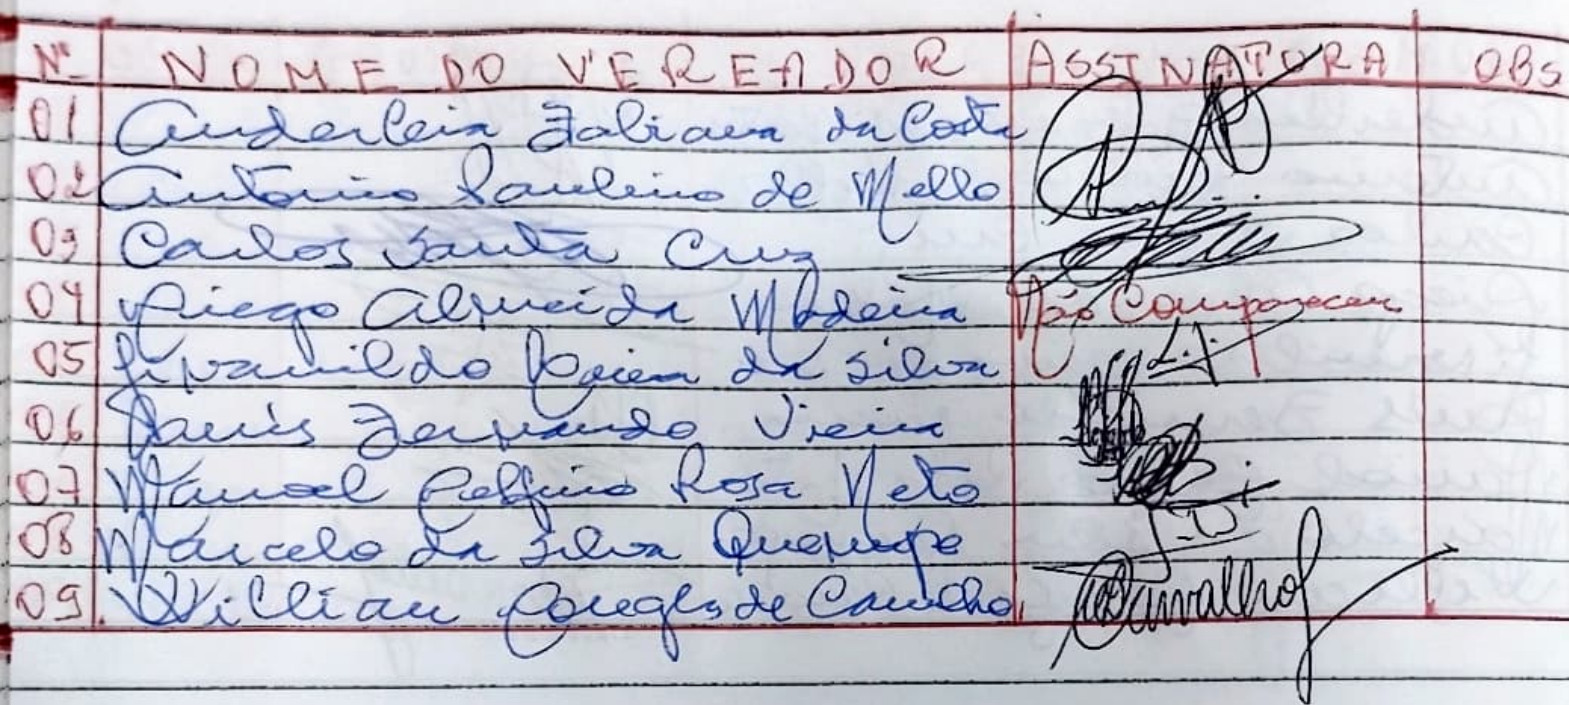 Nº NOME DO VEREADOR ASSINATURA OBS
01 Anderleia Fabiana da Costa
02 Antonio Paulino de Mello
03 Carlos Santa Cruz
04 Diego Almeida Madeira Não Compareceu
05 da Silva L.J
06 Fernando Vieira
07 Manoel Delfino Rosa Neto
08 Marcelo da Silva
09 Willian Douglas de Carvalho Carvalho